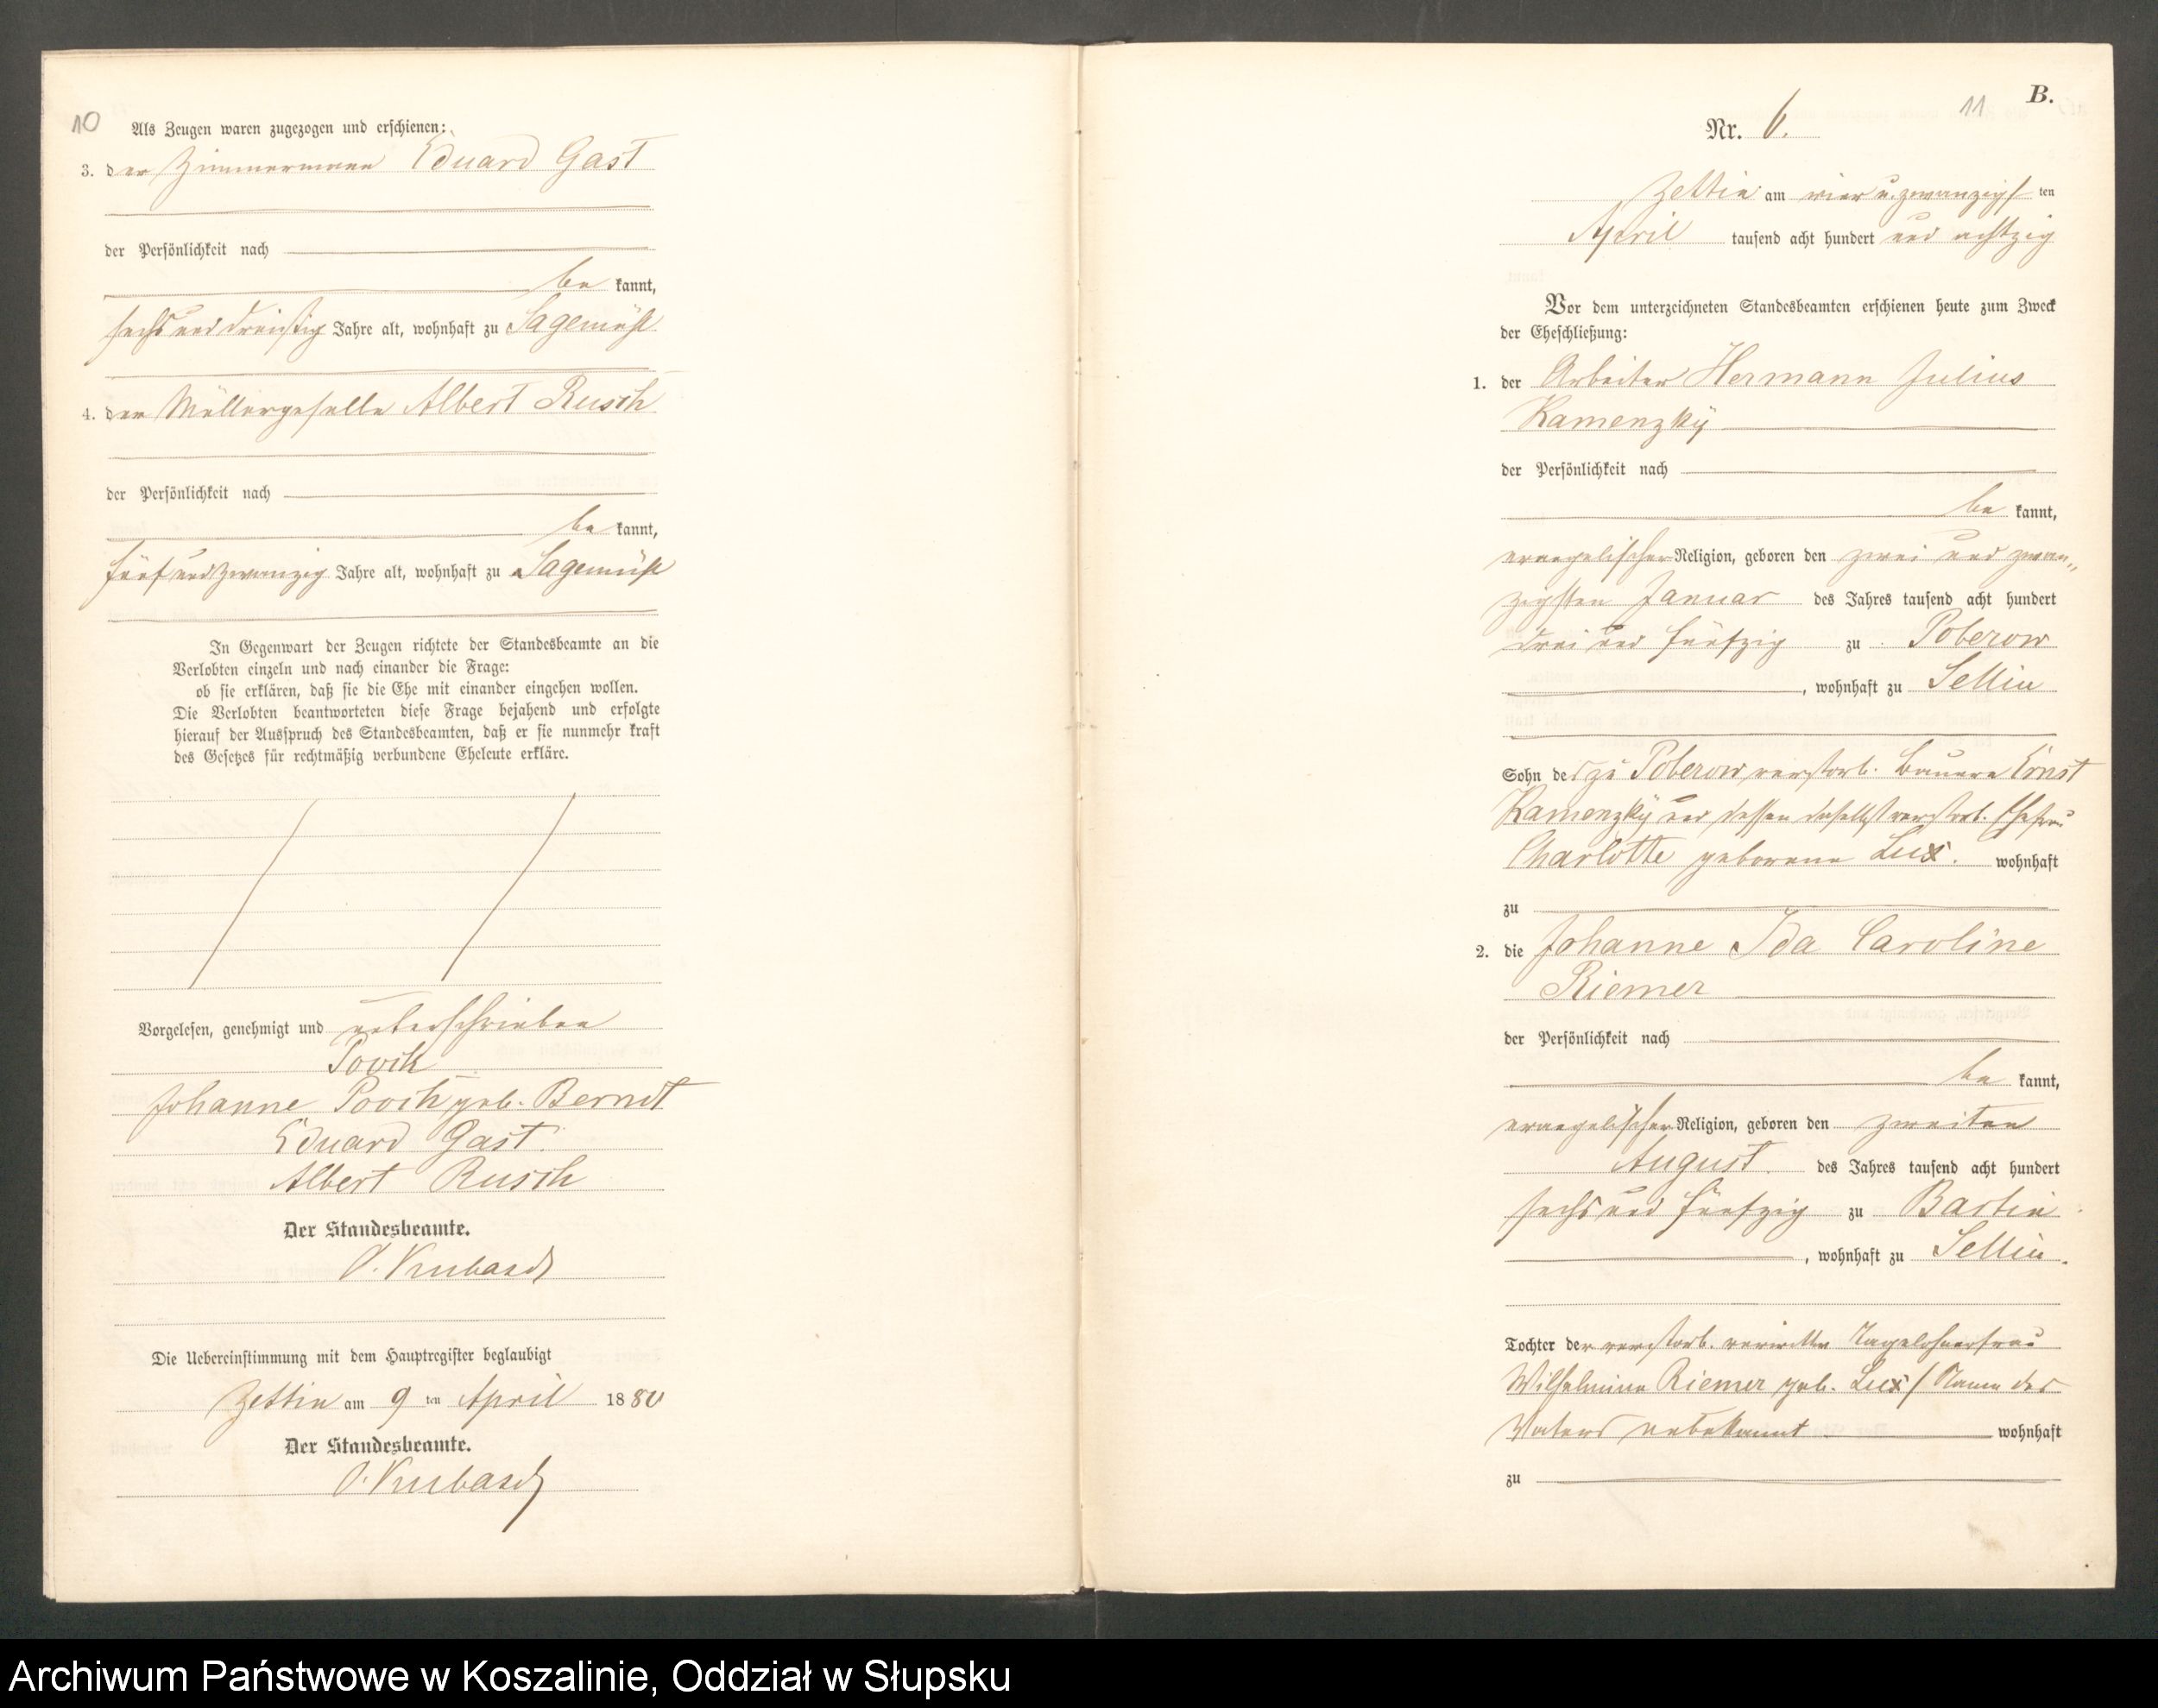 10
Als Zeugen waren zugezogen und erschienen:
3. der Zimmermann Eduard Gast
der Persönlichkeit nach
be kannt,
sechs und dreißig Jahre alt, wohnhaft zu Sagemühl
4. der Müllergeselle Albert Rusch
der Persönlichkeit nach
be kannt,
fünf und zwanzig Jahre alt, wohnhaft zu Sagemühl
In Gegenwart der Zeugen richtete der Standesbeamte an die
Verlobten einzeln und nach einander die Frage:
ob sie erklären, daß sie die Ehe mit einander eingehen wollen.
Die Verlobten beantworteten diese Frage bejahend und erfolgte
hierauf der Ausspruch des Standesbeamten, daß er sie nunmehr kraft
des Gesetzes für rechtmäßig verbundene Eheleute erkläre.
Vorgelesen, genehmigt und unterschrieben
Johanne geb. Berndt
Eduard Gast.
Albert Rusch
Der Standesbeamte.
Die Uebereinstimmung mit dem Hauptregister beglaubigt
Zettin am 9 ten April 1880
Der Standesbeamte.
B.
11
Nr. 6.
Zettin am vier u. zwanzigsten
April tausend acht hundert und achtzig
Vor dem unterzeichneten Standesbeamten erschienen heute zum Zweck
der Eheschließung:
1. der Arbeiter Hermann Julius
Kamenzky
der Persönlichkeit nach
be kannt,
evangelischer Religion, geboren den zwei und zwan„
zigsten Januar des Jahres tausend acht hundert
drei und fünfzig zu Poberow
, wohnhaft zu Sellin
Sohn des zu Poberow verstorb. Bauern Ernst
Kamenzky und dessen daselbst verstorb. Ehefrau
Charlotte geborene Lux. wohnhaft
zu
2. die Johanne Ida Caroline
Riemer
der Persönlichkeit nach
be kannt,
evangelischer Religion, geboren den zweiten
August des Jahres tausend acht hundert
sechs und fünfzig zu Bartin
, wohnhaft zu Sellin.
Tochter der verstorb. Tagelöhnerfrau
Wilhelmine Riemer geb. Lux / Name des
Vaters unbekannt wohnhaft
zu
Archiwum Państwowe w Koszalinie, Oddział w Słupsku